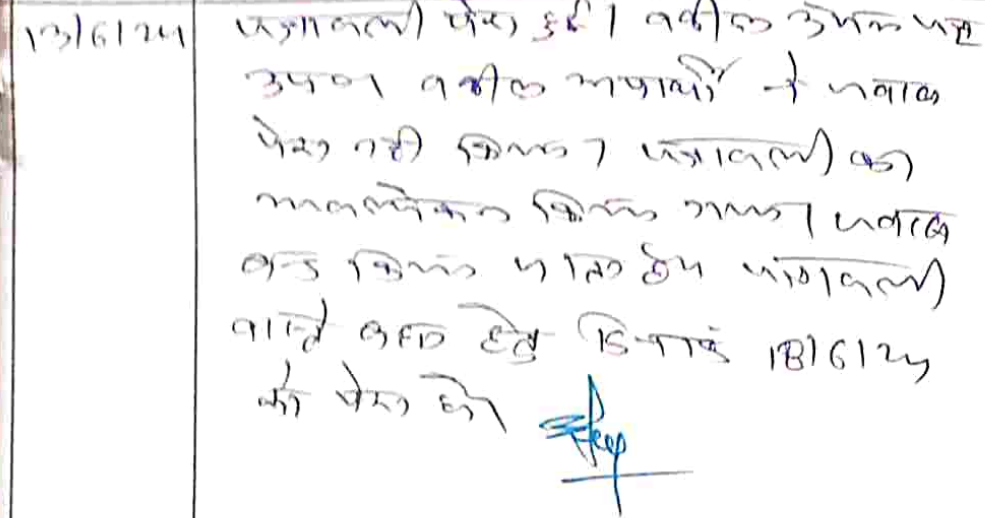 13/6/24 पत्रावली पेश हुई। वकील उभय पक्ष
उप० वकील अप्रार्थी ने जवाब
पेश नही किया। पत्रावली का
अवलोकन किया गया। जवाब
बन्द किया जाता है। पत्रावली
वास्ते बहस हेतु दिनांक 18/6/24
को पेश हो।